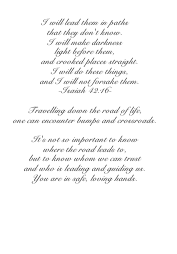 I will lead them in paths
that they don't know.
I will make darkness
light before them,
and crooked places straight.
I will do these things,
and I will not forsake them.
-Isaiah 42:16-
Travelling down the road of life,
one can encounter bumps and crossroads.
It's not so important to know
where the road leads to,
but to know whom we can trust
and who is leading and guiding us.
You are in safe, loving hands.